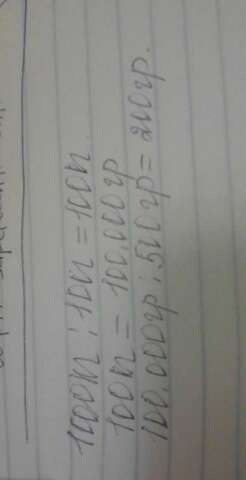 1000К : 10К = 100К.
100К = 100.000гр
100.000гр : 500гр = 200гр.